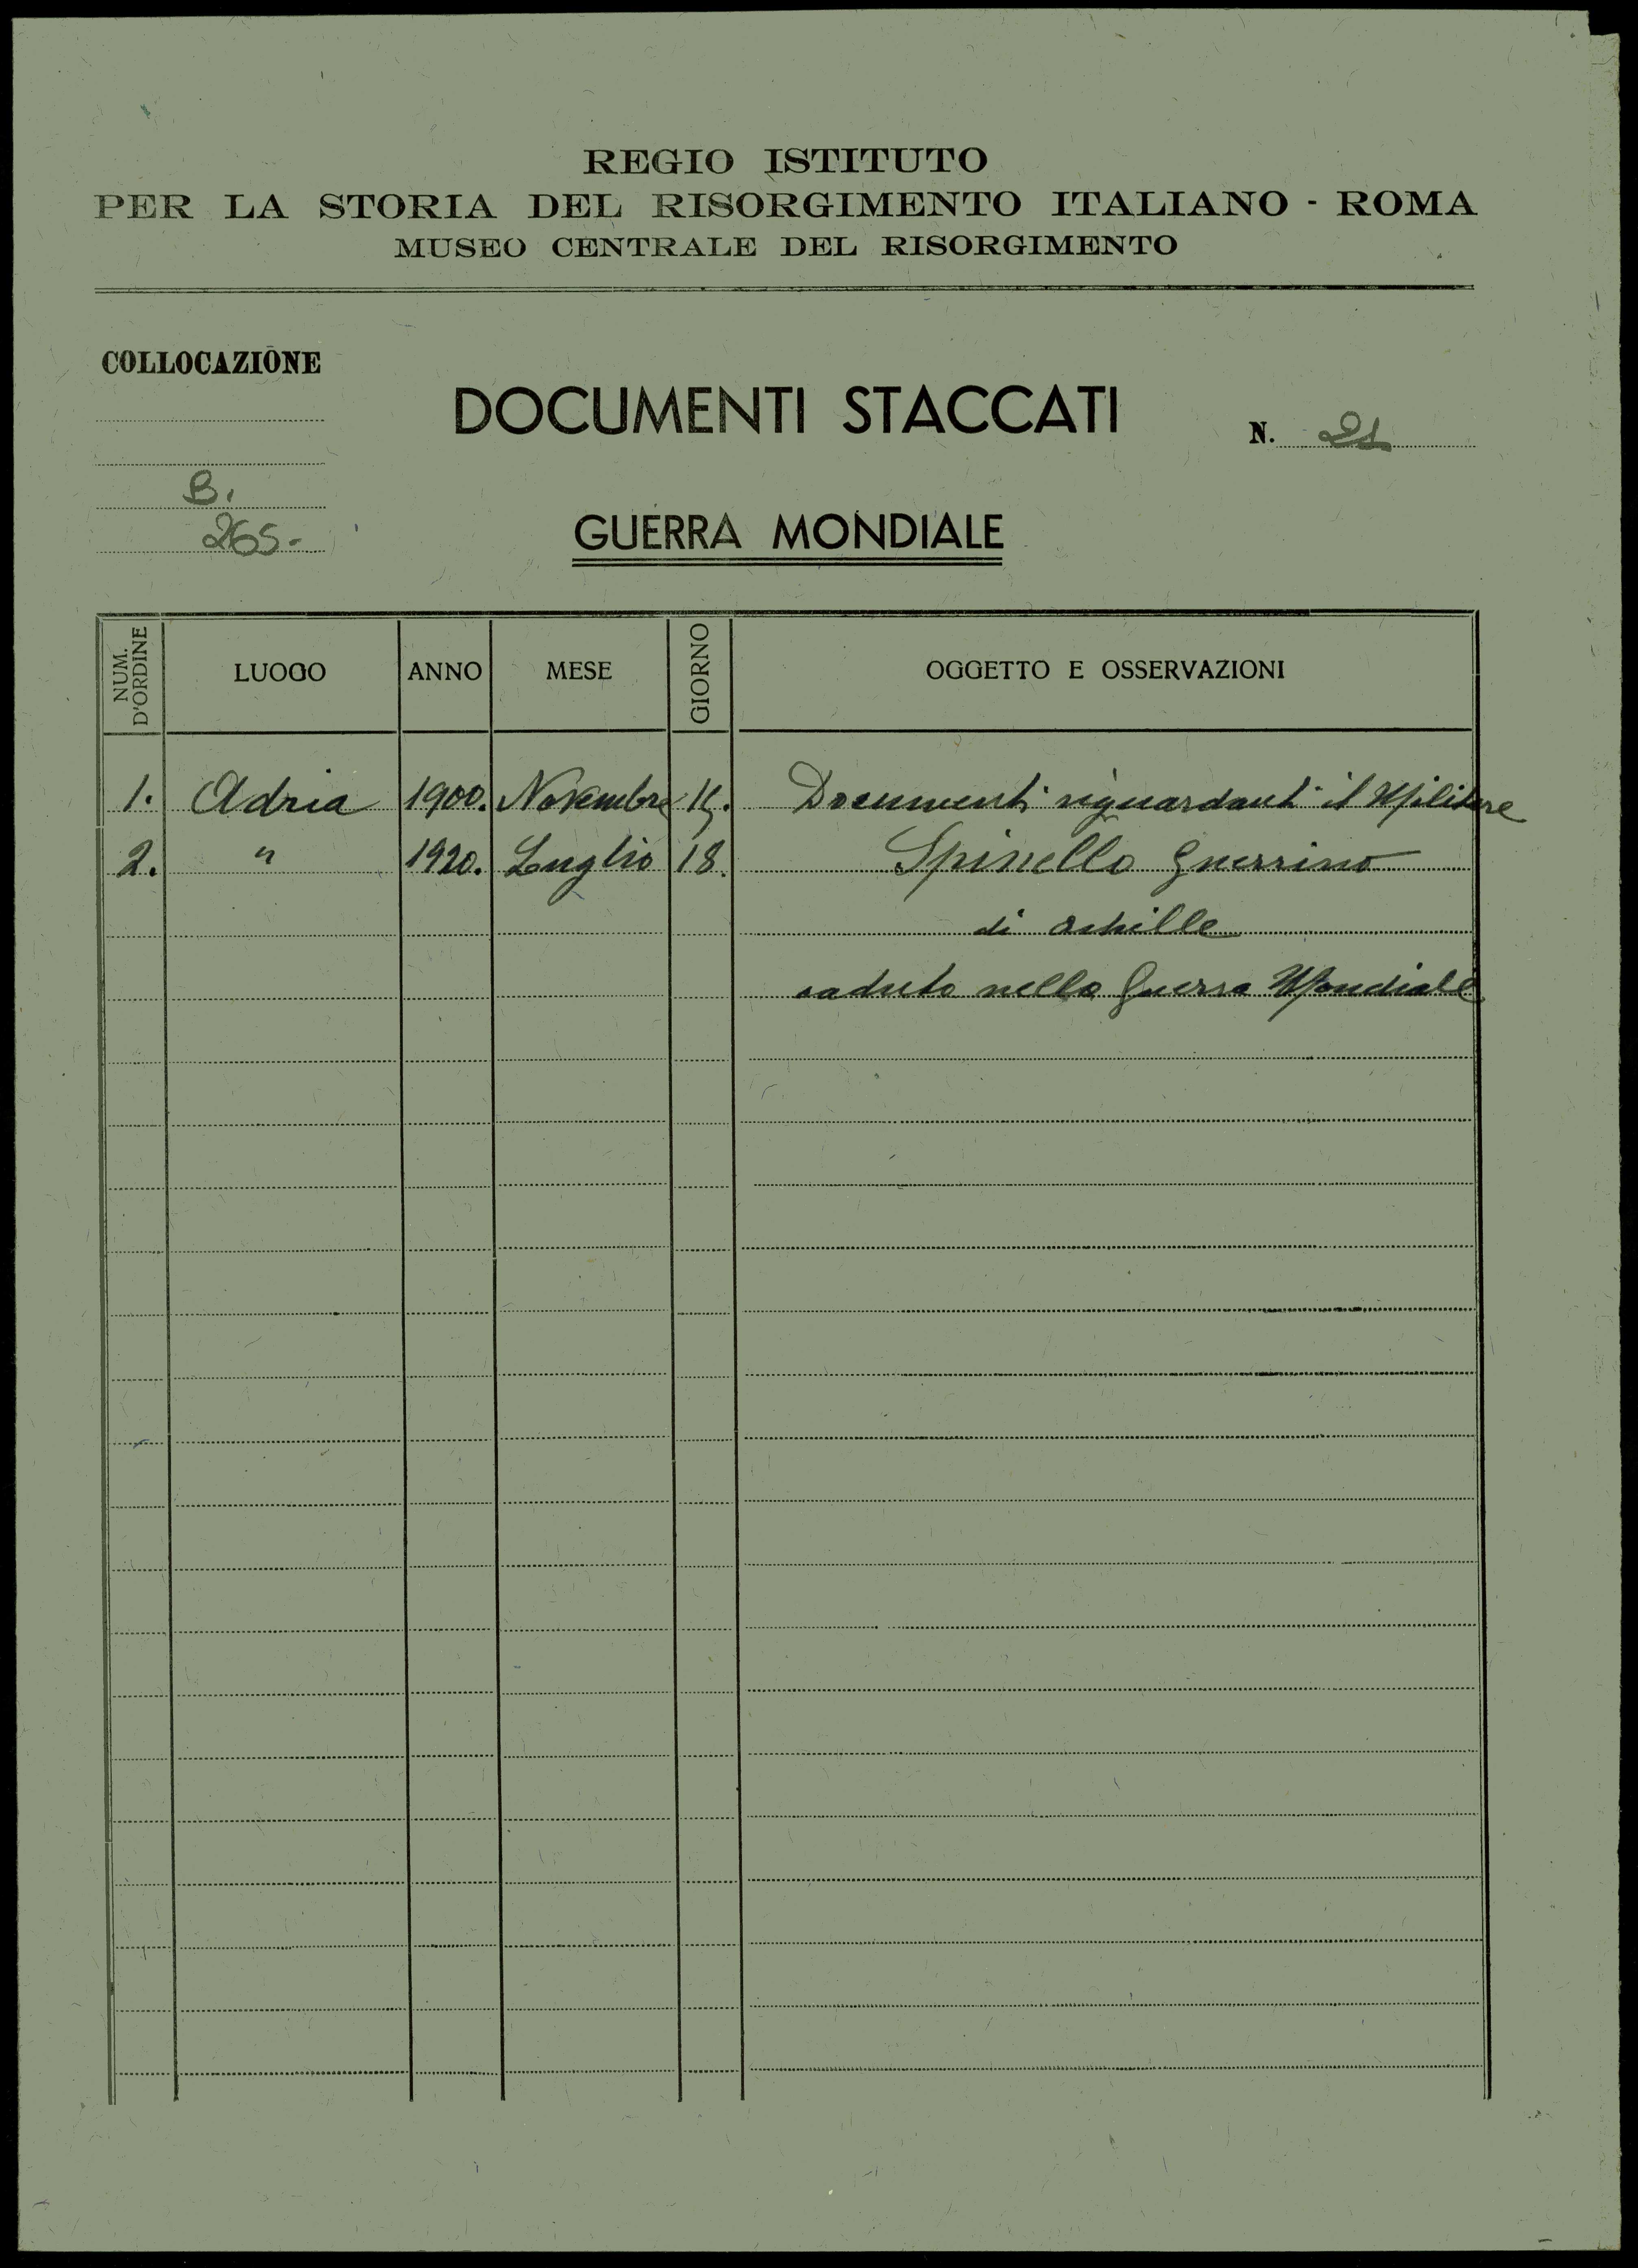 REGIO ISTITUTO
PER LA STORIA DEL RISORGIMENTO ITALIANO - ROMA
MUSEO CENTRALE DEL RISORGIMENTO
COLLOCAZIONE
DOCUMENTI STACCATI
N. 21
B.
265-
GUERRA MONDIALE
NUM. D'ORDINE LUOGO ANNO MESE GIORNO OGGETTO E OSSERVAZIONI
1. Adria 1900. Novembre 15. Documenti riguardanti il Militare
2. " 1920. Luglio 18. Spinello Guerrino
di Achille
caduto nella Guerra Mondiale